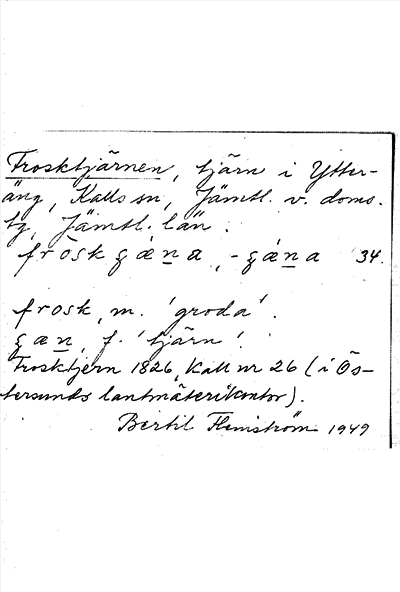 Frosktjärnen, tjärn i Ytter-
äng, Kalls sn, Jämtl. v. doms.
tg, Jämtl. län.
fròskgæ̀na, -gǽna '34.
frosk, m. 'groda'.
gæn, f. 'tjärn'.
Frosktjern 1826, Kall nr 26 (i Ös-
tersunds lantmäterikontor).
Bertil Flemström 1949